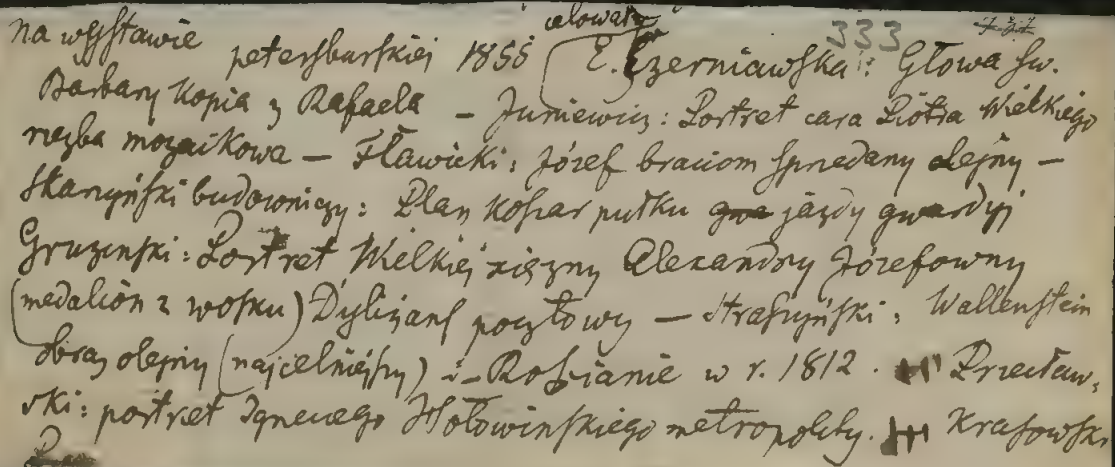 celowała
333
na wystawie petersburskiej 1855 E. Czerniawska: Głowa św.
Barbary kopia z Rafaela – Juniewicz: Portret cara Piotra Wielkiego
rzeźba mozaikowa – Fławicki: Józef braciom sprzedany olejny –
Skarżyński budowniczy: Plan koszar pułku jazdy gwardyj
Gruzinski: Portret Wielkiej xiężny Alexandry Józefowny
(medalion z wosku) Dyliżans pocztowy – Straszyński: Wallenstein
obraz olejny (najcelniejszy) i – Rosjanie w r. 1812. Przecław-
ski: portret Ignacego Hołowinskiego metropolity. Krasowski